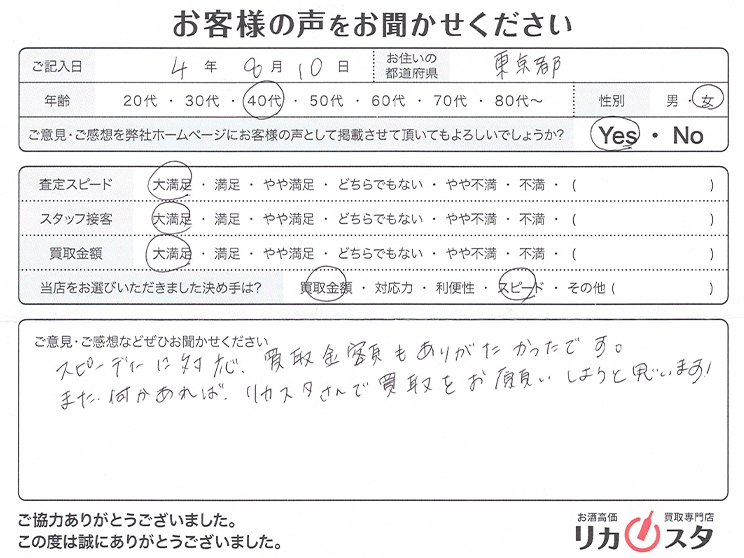 お客様の声をお聞かせください
ご記入日 4年 8月 10日 お住いの都道府県 東京都
年齢 20代・30代・40代・50代・60代・70代・80代〜 性別 男・女
ご意見・ご感想を弊社ホームページにお客様の声として掲載させて頂いてもよろしいでしょうか? Yes・No
査定スピード 大満足・満足・やや満足・どちらでもない・やや不満・不満・( )
スタッフ接客 大満足・満足・やや満足・どちらでもない・やや不満・不満・( )
買取金額 大満足・満足・やや満足・どちらでもない・やや不満・不満・( )
当店をお選びいただきました決め手は? 買取金額・対応力・利便性・スピード・その他( )
ご意見・ご感想などぜひお聞かせください
スピーディーに対応、買取金額もありがたかったです。
また何かあれば、リカスタさんで買取をお願いしようと思います!
ご協力ありがとうございました。
この度は誠にありがとうございました。
お酒高価 買取専門店
リカスタ